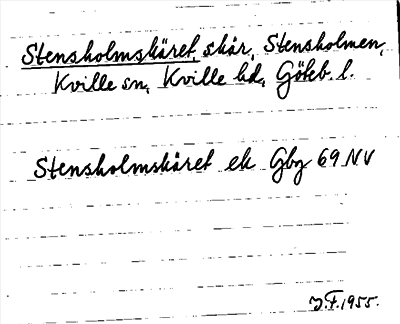 Stensholmskäret, skär, Stensholmen,
Kville sn, Kville hd, Göteb. l.
Stensholmskäret ek Gbg 69 NV
J.F. 1955.